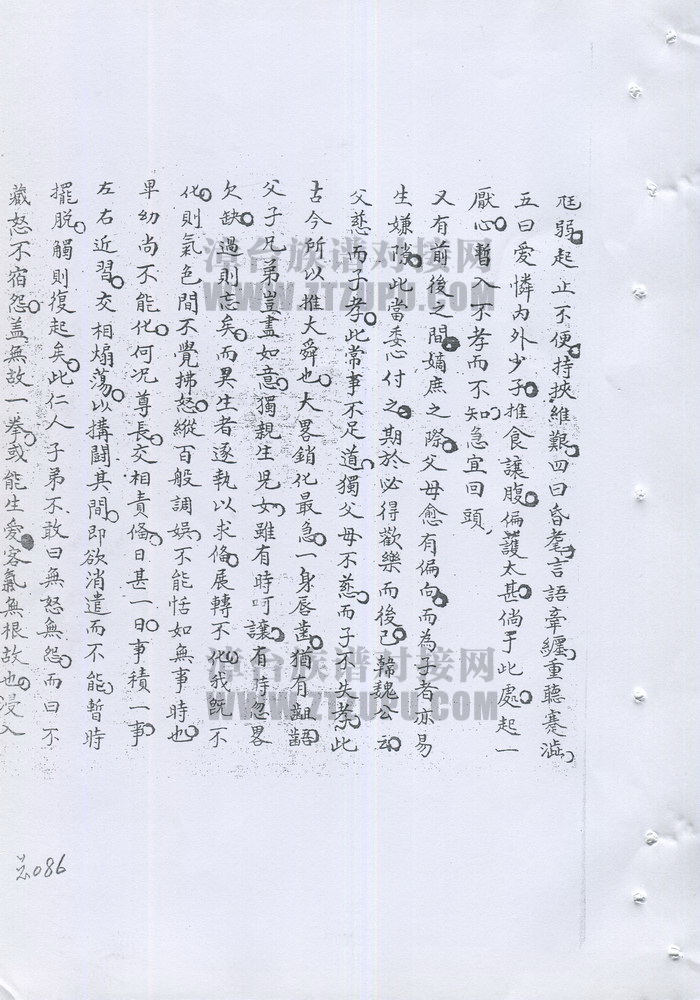 尫弱起止不便持挾維艱四曰昏耄言語牽纏重聽蹇澁
五曰愛憐內外少子推食讓腹偏護太甚倘于此處起一
厭心暫入不孝而不知急宜回頭
又有前後之間嫡庶之際父母愈有偏向而為子者亦易
生嫌隙此當委心付之期於必得歡樂而後已韓魏公云
父慈而子孝此常事不足道獨父母不慈而子不失孝此
古今所以推大舜也大畧銷化最急一身唇齒猶有齟齬
父子兄弟豈盡如意獨親生児女雖有時吁讓有時忽畧
欠缺過則忘矣而異生者逐執以求俻展轉不化我既不
化則氣色間不覺拂怒縱百般調娛不能恬如無事時也
卑幼尚不能化何况尊長交相責俻日甚一日事積一事
左右近習交相煽蕩以搆鬪其間即欲消遣而不能暫時
擺脱觸則復起矣此仁人子弟不敢曰無怒無怨而曰不
藏怒不宿怨盖無故一拳或能生愛客氣無根故也浸入
总086
漳台族谱对接网
WWW.ZTZUPU.COM
漳台族谱对接网
WWW.ZTZUPU.COM